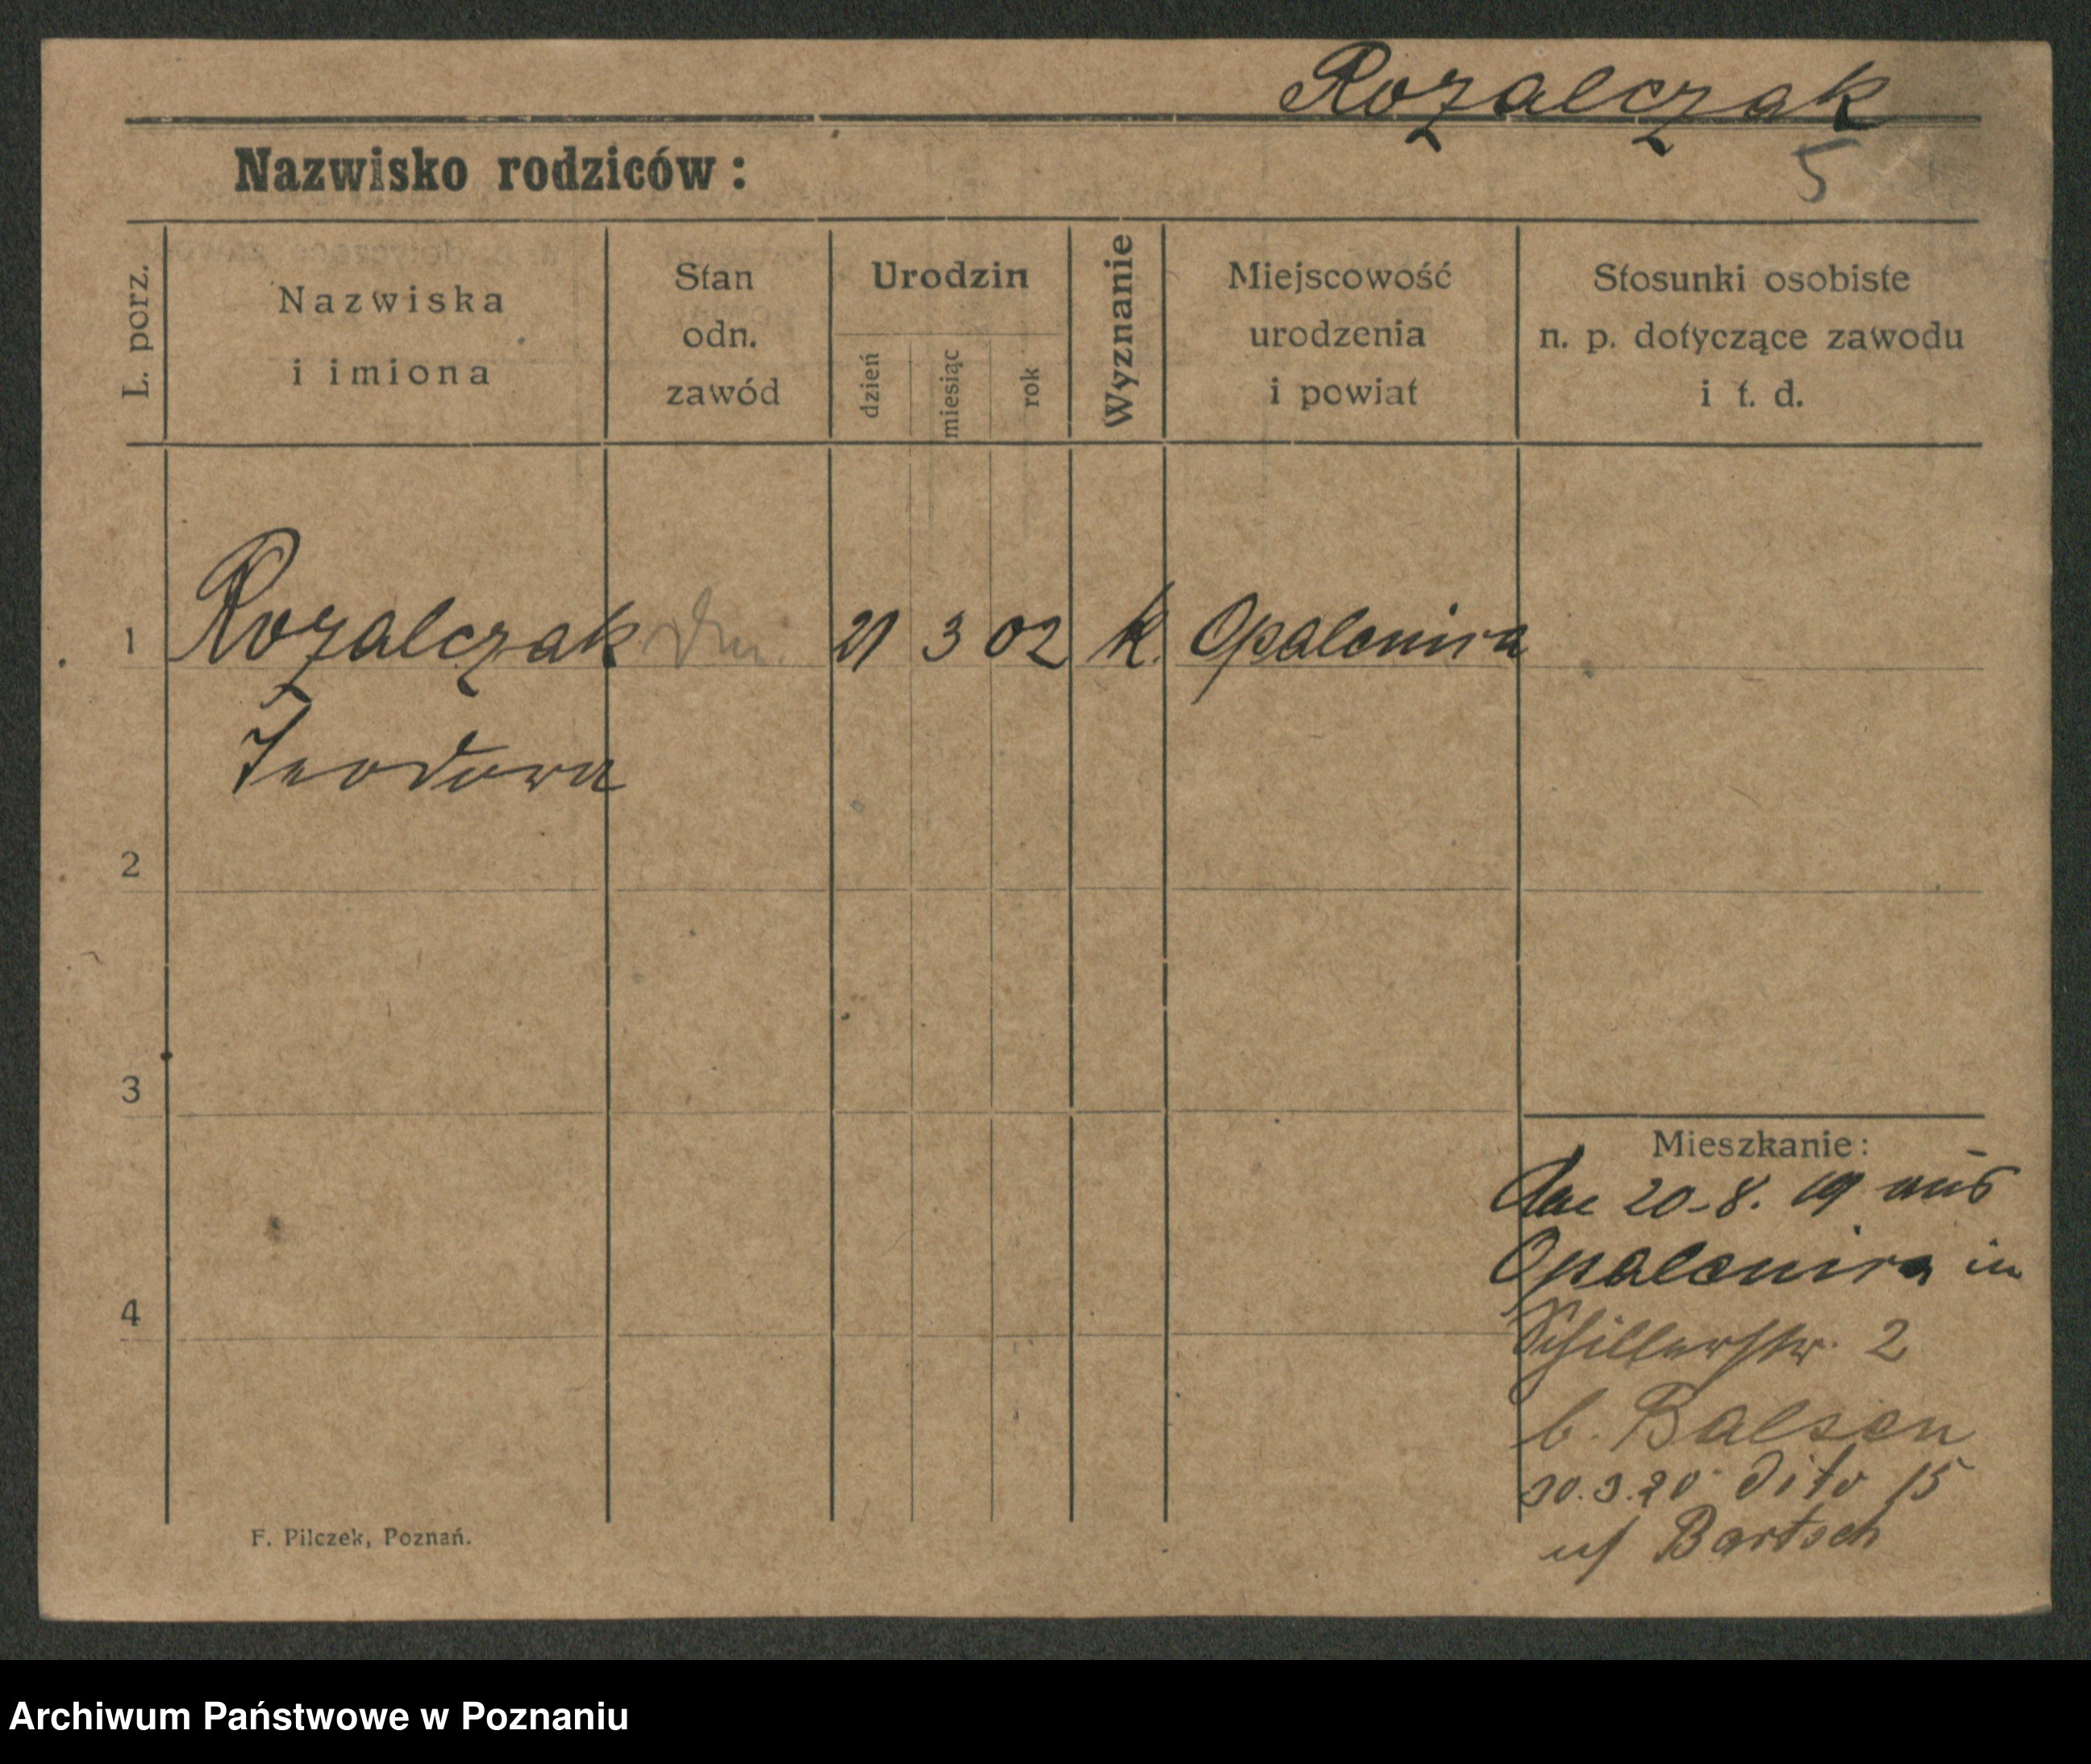 Rozalczak
5
Nazwisko rodziców:
L. porz.
Nazwiska
i imiona
Stan
odn.
zawód
Urodzin
dzień
miesiąc
rok
Wyznanie
Miejscowość
urodzenia
i powiat
Stosunki osobiste
n. p. dotyczące zawodu
i t. d.
1 Rozalczak 21 3 02 k. Opalenica
Teodora
2
3
4
Mieszkanie:
20-8. 19 aus
Opalenica in
Schillerstr. 2
b. Balsen
30.3.20 dito 15
b/ Bartsch
F. Pilczek, Poznań.
Archiwum Państwowe w Poznaniu